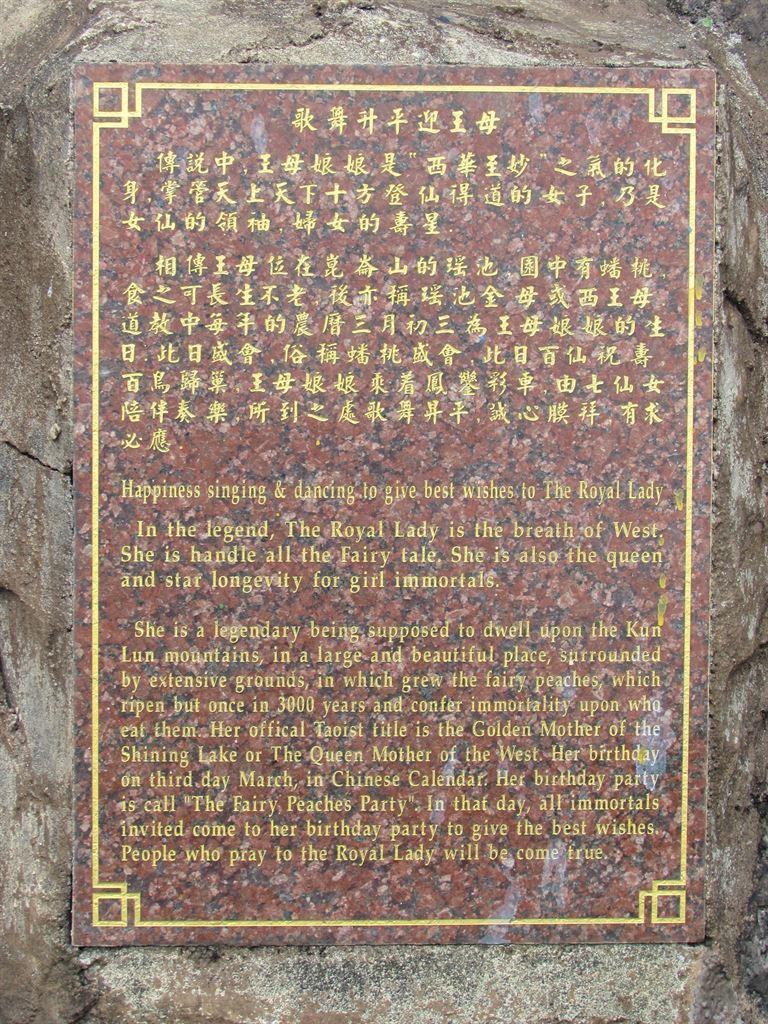 歌舞升平迎王母
傳説中,王母娘娘是"西華至妙"之氣的化
身,掌管天上天下十方登仙得道的女子,乃是
女仙的領袖,婦女的壽星.
相傳王母位在崑崙山的瑶池,園中有蟠桃,
食之可長生不老,後亦稱瑶池金母或西王母
道教中每年的農曆三月初三為王母娘娘的生
日.此日盛會,俗稱蟠桃盛會,此日百仙祝壽
百鳥歸巢,王母娘娘乘着鳳鑾彩車,由七仙女
陪伴奏樂,所到之處歌舞昇平,誠心膜拜,有求
必應.
Happiness singing & dancing to give best wishes to The Royal Lady
In the legend, The Royal Lady is the breath of West.
She is handle all the Fairy tale. She is also the queen
and star longevity for girl immortals.
She is a legendary being supposed to dwell upon the Kun
Lun mountains, in a large and beautiful place, surrounded
by extensive grounds, in which grew the fairy peaches, which
ripen but once in 3000 years and confer immortality upon who
eat them. Her offical Taoist title is the Golden Mother of the
Shining Lake or The Queen Mother of the West. Her birthday
on third day March, in Chinese Calendar. Her birthday party
is call "The Fairy Peaches Party". In that day, all immortals
invited come to her birthday party to give the best wishes.
People who pray to the Royal Lady will be come true.